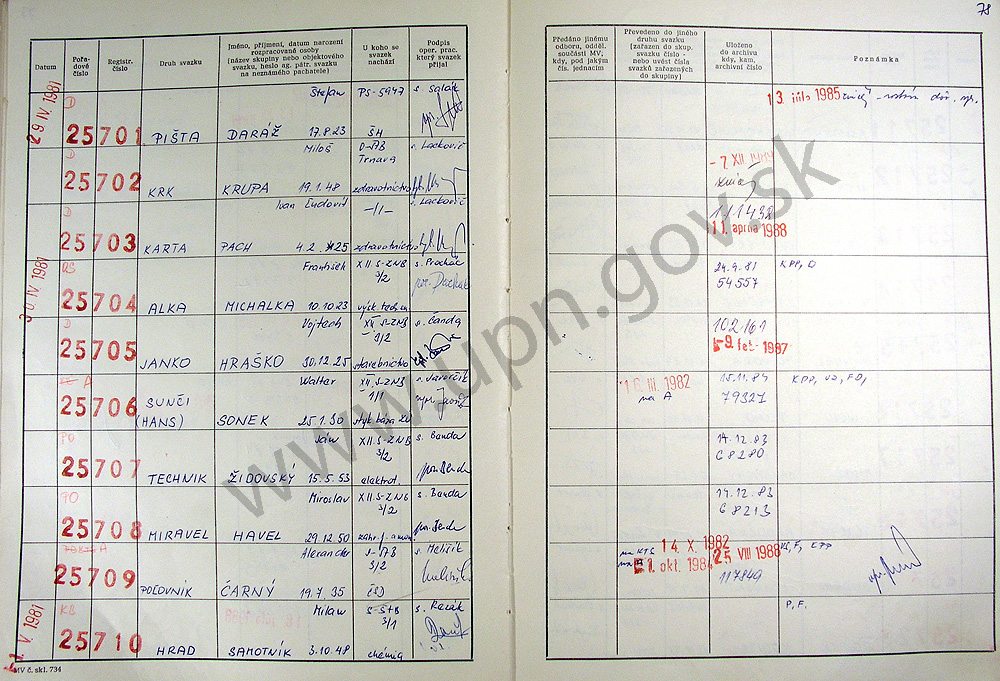 78
Datum
Pořa-
dové
číslo
Registr.
číslo
Druh svazku
Jméno, příjmení, datum narození
rozpracované osoby
(název skupiny nebo objektového
svazku, heslo ag. pátr. svazku
na neznámého pachatele)
U koho se
svazek
nachází
Podpis
oper. prac.
který svazek
přijal
Předáno jinému
odboru, odděl.
součásti MV,
kdy, pod jakým
čís. jednacím
Převedeno do jiného
druhu svazku
(zařazen do skup.
svazku číslo -
nebo uvést čísla
svazků zařazených
do skupiny)
Uloženo
do archivu
kdy, kam,
archivní číslo
Poznámka
29 IV. 1981
D
25701
PIŠTA
Štefan
DARÁŽ 17.8.23
PS-5947
ŠH
s. Salák
13. júla 1985
D
25702
KRK
Miloš
KRUPA 19.1.48
D-ŠtB
Trnava
zdravotníctvo
s. Lackovič
-7. XII.
D
25703
KARTA
Ivan Ľudovít
PACH 4.2.25
-//-
zdravotníctvo
s. Lackovič
11432
11. apríla 1988
30 IV. 1981
25704
ALKA
František
MICHALKA 10.10.23
XII. S-ZNB
3/2
s. Prochác
24.9.81
54557
KPP, D
D
25705
JANKO
Vojtech
HRAŠKO 30.12.25
XII S-ZNB
3/2
stavebníctvo
s. Čanda
102161
-9. feb. 1987
A
25706
SUNČI
(HANS)
Walter
SONEK 25.1.30
XII. S-ZNB
1/1
16. III. 1982
na A
15.11.84
79327
KPP, VD, FD,
PO
25707
TECHNIK
Ján
ŽIDOVSKÝ 15.5.53
XII. S-ZNB
3/2
elektrot.
s. Banda
14.12.83
68280
25708
MIRAVEL
Miroslav
HAVEL 29.12.50
XII. S-ZNB
3/2
s. Banda
14.12.83
68213
A
25709
POĽOVNÍK
Alexander
ČARNÝ 19.7.35
S-ŠtB
3/2
ČSD
s. Meliřik
na KTS 14. X. 1982
na 1. okt. 1984
25 VIII 1988
117849
KPP
V. 1981
KB
25710
HRAD
Milan
SAMOTNÍK 3.10.48
S-ŠtB
3/1
chémia
s. Rezák
P, F.
MV č. skl. 734
www.upn.gov.sk